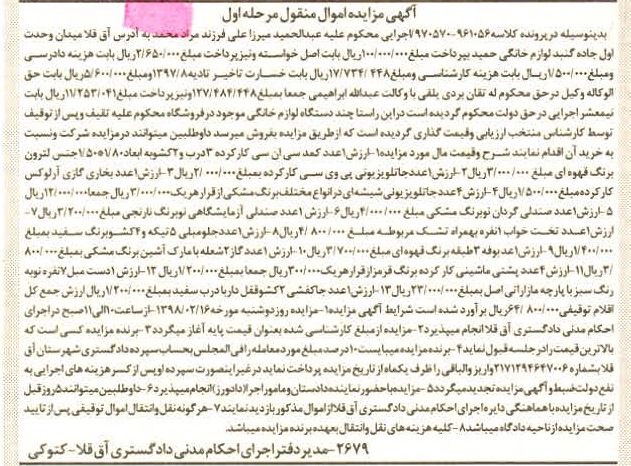 آگهی مزایده اموال منقول مرحله اول
بدینوسیله درپرونده کلاسه ۹۶۱۰۵۶-۹۷۰۵۷۰اجرایی محکوم علیه عبدالحمید میرزا علی فرزند مراد محمد به آدرس آق قلا میدان وحدت
اول جاده گنبد لوازم خانگی حمید بپرداخت مبلغ ۱۰۰/۰۰۰/۰۰۰ریال بابت اصل خواسته ونیز پرداخت مبلغ ۲/۶۵۰/۰۰۰ریال بابت هزینه دادرسی
ومبلغ ۱/۵۰۰/۰۰۰ریال بابت هزینه کارشناسی ومبلغ ۱۷/۷۳۴/۴۴۸ریال بابت خسارت تاخیر تادیه ۱۳۹۷/۸ومبلغ ۵/۶۰۰/۰۰۰ریال بابت حق
الوکاله وکیل در حق محکوم له تقان بردی یلقی با وکالت عبدالله ابراهیمی جمعا بمبلغ ۱۲۷/۴۸۴/۴۴۸ونیز پرداخت مبلغ ۱۱/۲۵۳/۰۴۱ریال بابت
نیمعشر اجرایی در حق دولت محکوم گردیده است در این راستا چند دستگاه لوازم خانگی موجود در فروشگاه محکوم علیه تقیف وپس از توقیف
توسط کارشناس منتخب ارزیابی وقیمت گذاری گردیده است که ازطریق مزایده بفروش میرسد داوطلبین میتوانند درمزایده شرکت ونسبت
به خرید آن اقدام نمایند شرح وقیمت مال مورد مزایده۱-ارزش۱عدد کمد سی ان سی کارکرده ۳درب و۲کشوبه ابعاد۱/۸۰*۱/۵۰جنس لترون
برنگ قهوه ای مبلغ ۳/۰۰۰/۰۰۰ریال۲-ارزش۱عددجاتلویزیونی پی وی سی کارکرده بمبلغ ۲/۰۰۰/۰۰۰ریال۳-ارزش۱عدد بخاری گازی آرلوکس
کارکرده مبلغ ۱/۵۰۰/۰۰۰ریال۴-ارزش۴عددجاتلویزیونی شیشه ای درانواع مختلف برنگ مشکی از قرار هریک ۳/۰۰۰/۰۰۰ریال جمعا۱۲/۰۰۰/۰۰۰ریال
۵-ارزش۱عدد صندلی گردان نوبرنگ مشکی مبلغ ۴/۰۰۰/۰۰۰ریال۶-ارزش۱عدد صندلی آزمایشگاهی نوبرنگ نارنجی مبلغ ۳/۲۰۰/۰۰۰ریال۷-
ارزش۱عدد تخت خواب ۱نفره بهمراه تشک مربوطه مبلغ ۴/۸۰۰/۰۰۰ریال۸-ارزش۱عدد جلومبلی ۵تیکه و۴کشوبرنگ سفید بمبلغ
۱/۴۰۰/۰۰۰ریال۹-ارزش۱عدد بوفه ۳طبقه برنگ قهوه ای مبلغ ۳/۷۰۰/۰۰۰ریال۱۰-ارزش۱عدد گاز ۲شعله با مارک آشین برنگ مشکی بمبلغ ۸۰۰/۰۰۰
/۳ریال۱۱-ارزش۴عدد پشتی ماشینی کارکرده برنگ قرمز ازقرار هریک ۳۰۰/۰۰۰ریال جمعا بمبلغ ۱/۲۰۰/۰۰۰ریال ۱۲-ارزش۱دست مبل ۷نفره نوبه
رنگ سبز با پارچه مازاراتی اصل بمبلغ ۲۳/۰۰۰/۰۰۰ریال۱۳-ارزش۱عدد جاکفشی ۲کشوقفل دار با درب سفید بمبلغ ۱/۲۰۰/۰۰۰ریال ارزش جمع کل
اقلام توقیفی ۶۴/۸۰۰/۰۰۰ریال برآورد شده است شرایط آگهی مزایده۱-مزایده روزدوشنبه مورخه ۱۳۹۸/۰۲/۱۶ازساعت ۱۰الی۱۱صبح دراجرای
احکام مدنی دادگستری آق قلاانجام میپذیرد۲-مزایده از مبلغ کارشناسی شده بعنوان قیمت پایه آغاز میگردد۳-برنده مزایده کسی است که
بالاترین قیمت را درجلسه قبول نماید۴-برنده مزایده میبایست۱۰درصد مبلغ مورد معامله رافی المجلس بحساب سپرده دادگستری شهرستان آق
قلابشماره ۲۱۷۱۲۹۴۶۴۷۰۰۶واریزوالباقی راظرف یکماه از تاریخ مزایده پرداخت نماید درغیراینصورت سپرده اوپس از کسر هزینه های اجرایی به
نفع دولت ضبط وآگهی مزایده تجدید میگردد۵-مزایده باحضور نماینده دادستان ومامور اجرا(دادورز)انجام میپذیرد۶-داوطلبین میتوانند۵روز قبل
از تاریخ مزایده با هماهنگی دایره اجرای احکام مدنی دادگستری آق قلااز اموال مذکور بازدیدنمایند۷-هرگونه نقل وانتقال اموال توقیفی پس از تایید
صحت مزایده از ناحیه دادگاه میباشد۸-کلیه هزینه های نقل وانتقال بعهده برنده مزایده میباشد.
۲۶۷۹-مدیر دفتر اجرای احکام مدنی دادگستری آق قلا-کتوکی